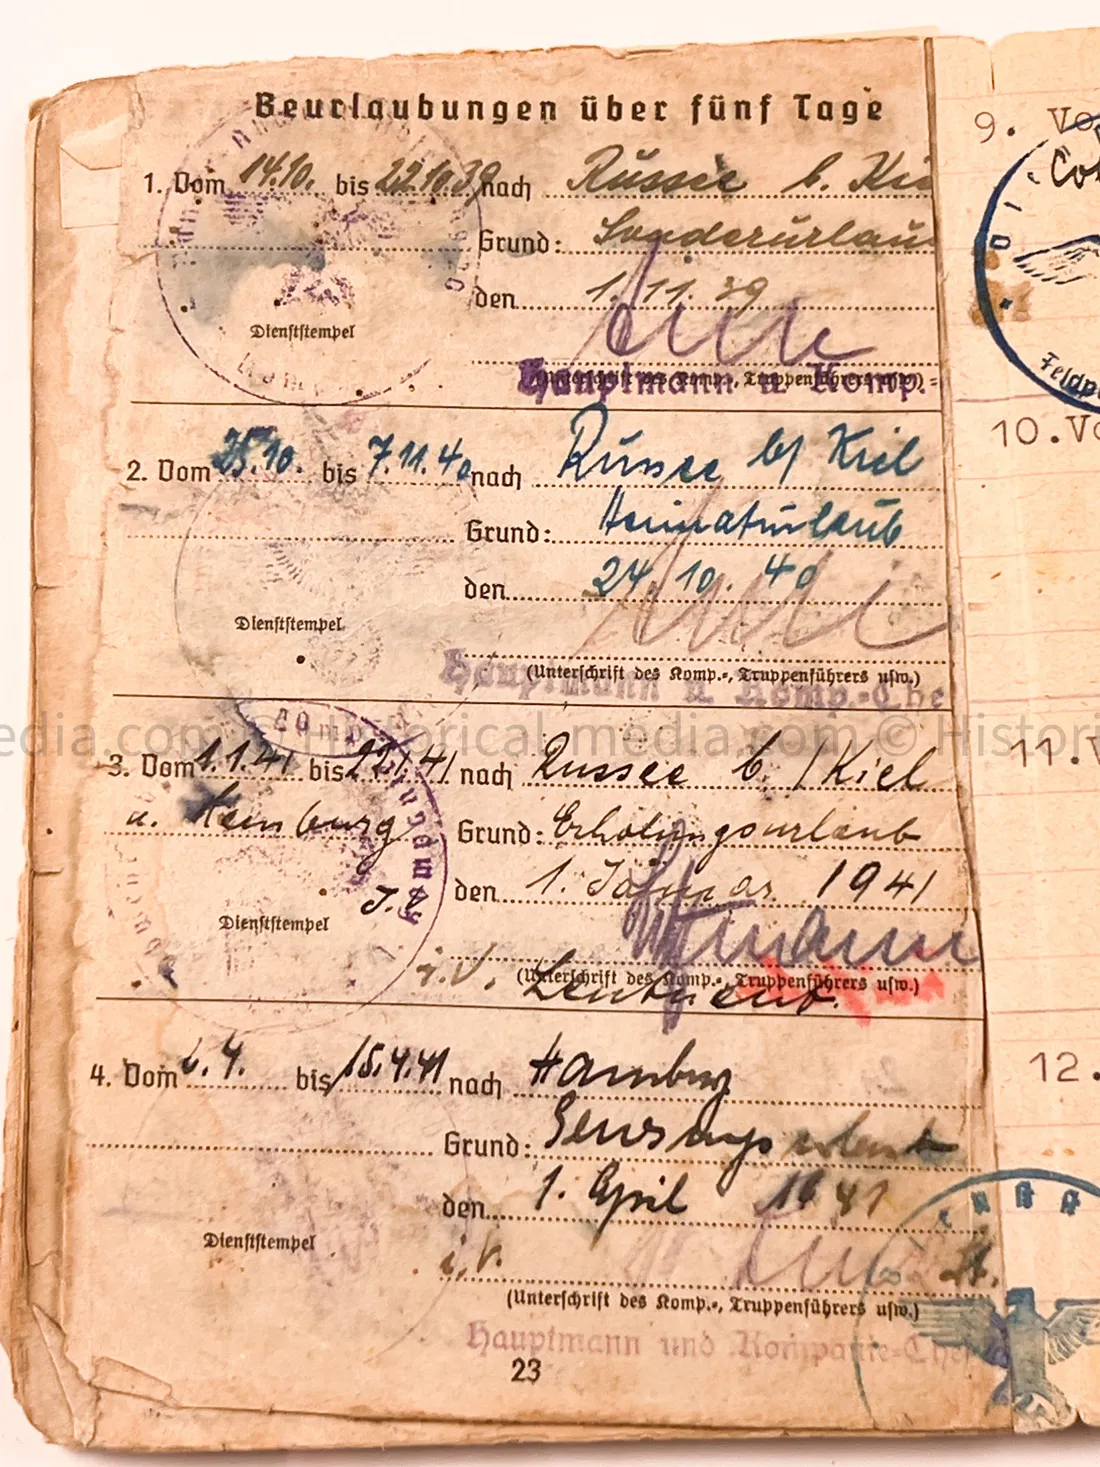 Beurlaubungen über fünf Tage
1. Vom 14.10. bis 22.10.39 nach Russee b. Kie
Grund: Sonderurlau
den 1.11.39
Dienststempel
(Unterschrift des Komp.-, Truppenführers usw.)
Hauptmann u. Komp.-
2. Vom 25.10. bis 7.11.40 nach Russee b/ Kiel
Grund: Heimaturlaub
den 24.10.40
Dienststempel
(Unterschrift des Komp.-, Truppenführers usw.)
Hauptmann u. Komp.-Che
edia.com © Historical-media.com © Histori
3. Vom 1.1.41 bis 41 nach Russee b./Kiel
u. Hamburg Grund: Erholungsurlaub
den 1. Januar 1941
Dienststempel
i.V. (Unterschrift des Komp.-, Truppenführers usw.)
Leutnant.
4. Vom 6.4. bis 15.4.41 nach Hamburg
Grund:
den 1. April 1941
Dienststempel
i.V.
(Unterschrift des Komp.-, Truppenführers usw.)
Hauptmann und Kompanie-Che
23
9. Vo
Feldp
10. Vo
11. V
12.